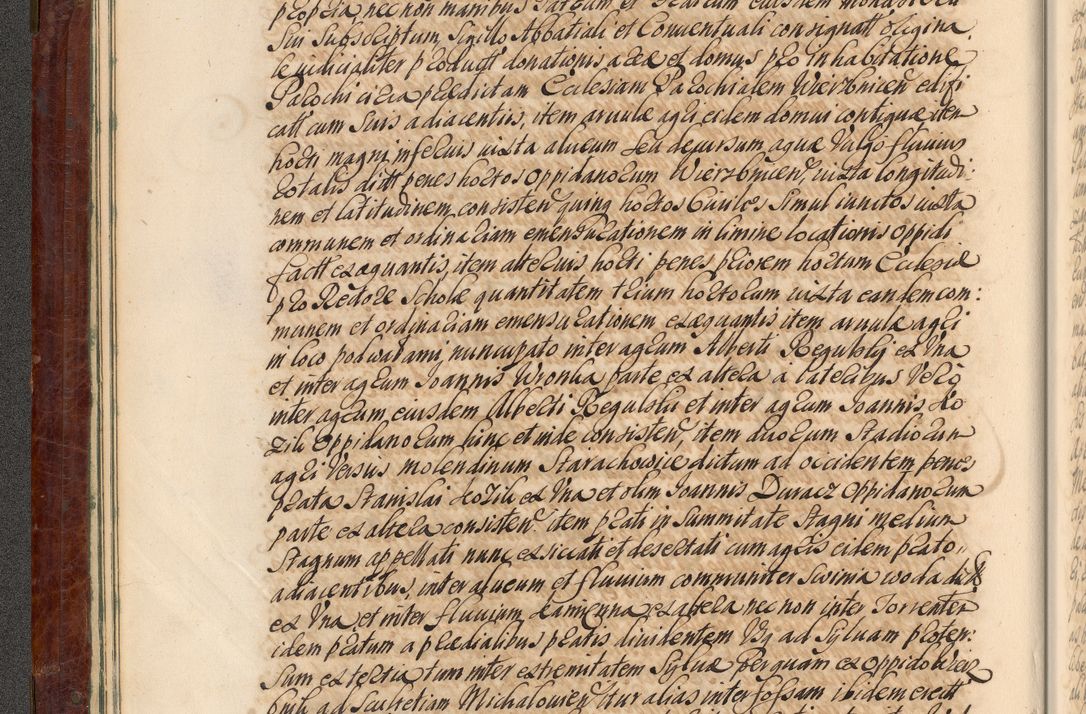 propria nec non manibus Patrum et Fratrum eiusdem Monasterii
sui subscriptum, Sigillo Abbatiali et Conventuali consignatt origina,
le iudicialiter product donationis areæ et domus pro inhabitatione
Parochi circa prædictam Ecclesiam Parochialem Wierzbnicen edifi
catt cum suis adiacentiis, item arvulæ agri eidem domui contiguæ item
horti magni inferius iuxta alveum seu decursum aquæ vulgo fluvius
Rotalis dictt penes hortos oppidanorum Wierzbnicen, iuxta longitudi:
nem et latitudinem consisten quinq hortos Civiles simul iunctos iuxta
communem et ordinariam emensurationem in limine locationis oppidi
factt exæquantis, item alterius horti penes priorem hortum Ecclesiæ
pro Rectore Scholæ quantitatem trium hortorum iuxta eandem con:
munem et ordinariam emensurationem exæquantis item arvulæ agri
in loco podwatami nuncupato inter agrum Alberti Regulski ex una
et inter agrum Joannis Wronka parte ex altera à lateribus vero
inter agrum eiusdem Alberti Regulski et inter agrum Joannis Ko
zik oppidanorum hinc et inde consisten, item duorum Stadiorum
agri versus molendinum Starachowice dictum ad occidentem penes
prata Stanislai Kozik ex una et olim Joannis Duracz oppidanorum
parte ex altera consisten item prati in summitate Stagni medium
Stagnum appellati nunc exsiccati et desertati cum agris eidem prato,,
adiacentibus, inter alveum et fluvium communiter Swinia woda dictt
ex una et inter fluvium Kamienna ex altera nec non inter Torrentem
idem pratum a prædialibus pratis dividentem usq ad Sylvam proten:
sum ex tertia tum inter extremitatem Sylvæ per quam ex oppido Wierz
bnik ad Scultetiam Michalovien itur alias inter fossam ibidem erectt